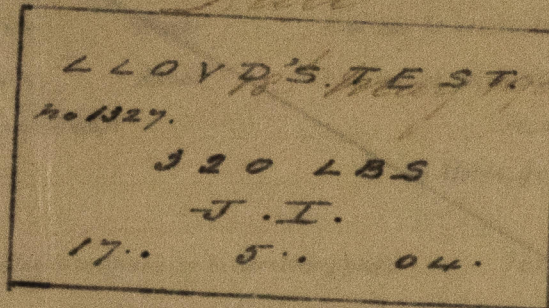 LLOYD'S. TEST.
No 1327.
320 LBS
J.I.
17.. 5.. 04.